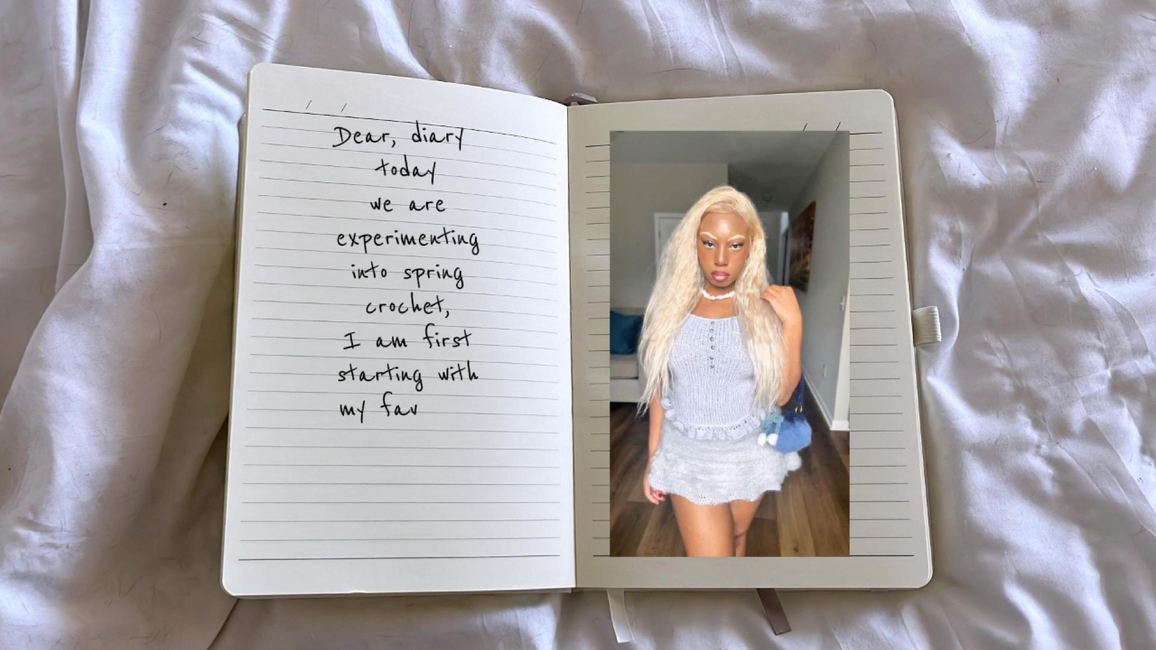 Dear, diary
today
we are
experimenting
into spring
crochet,
I am first
starting with
my fav